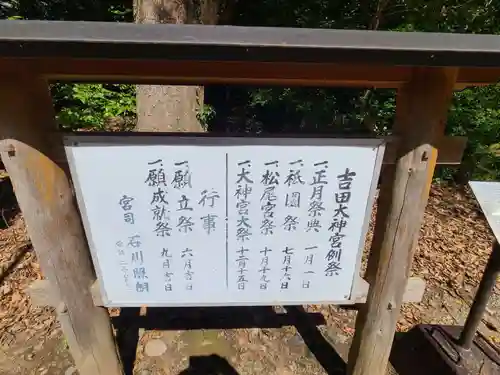 吉田大神宮例祭
一、正月祭典 一月一日
一、祇園祭 七月十六日
一、松尾宮祭 十月十九日
一、大神宮大祭 十二月十五日
行事
一、願立祭 六月吉日
一、願成就祭 九月吉日
宮司 石川